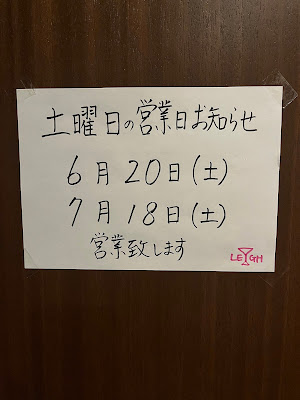 土曜日の営業日お知らせ
6月20日(土)
7月18日(土)
営業致します
LEIGH